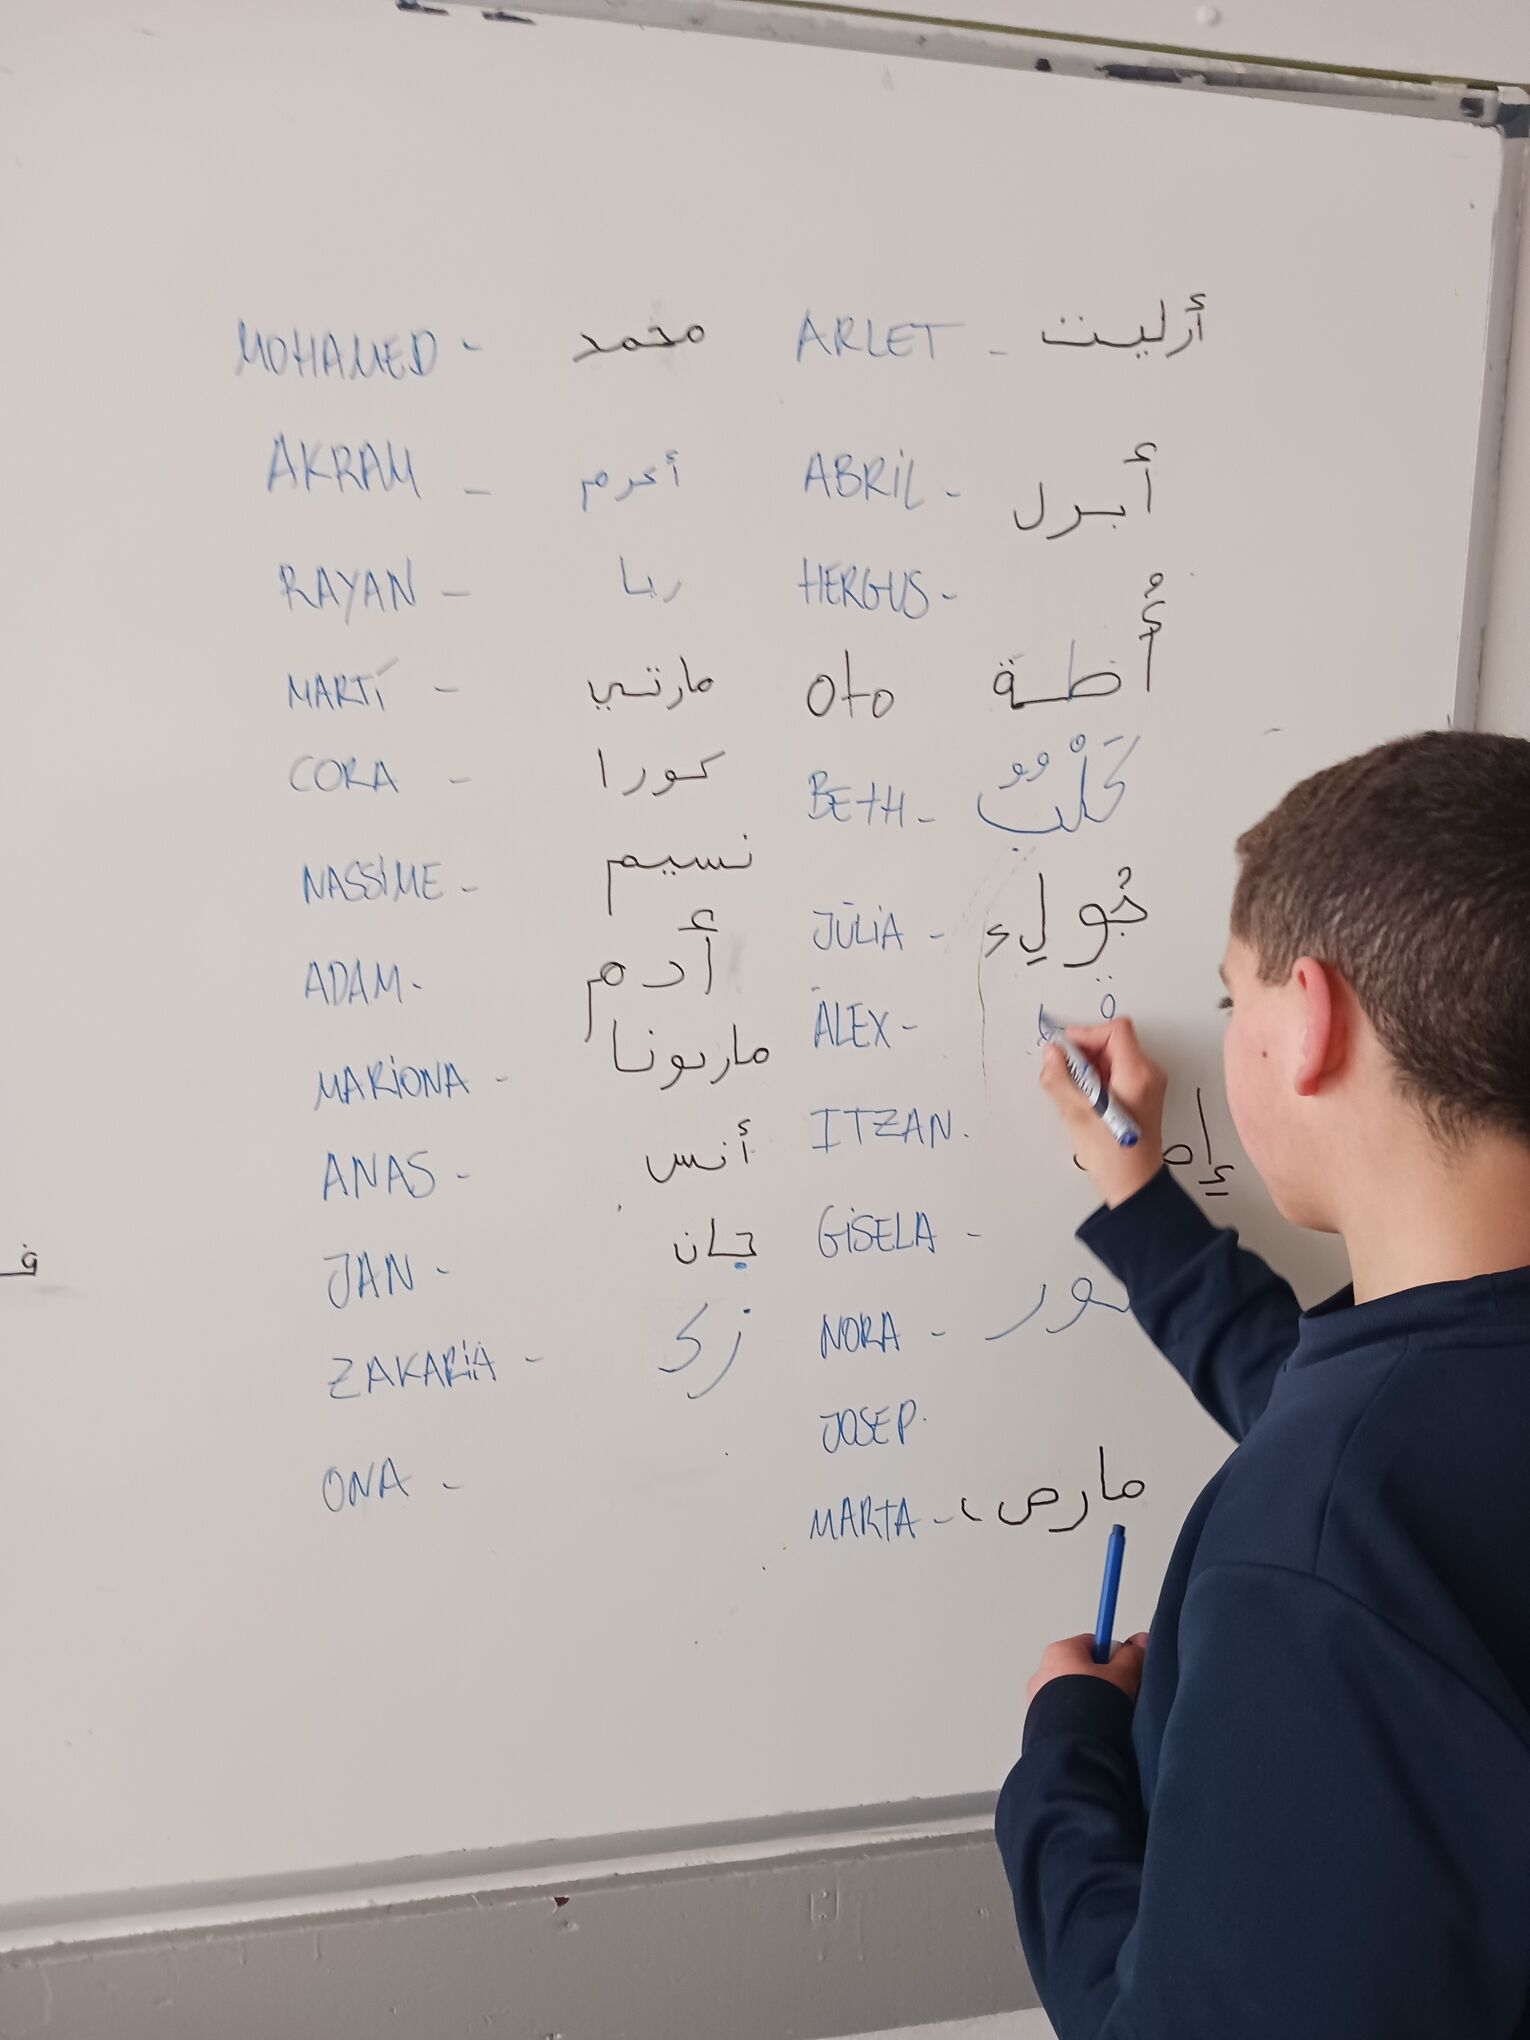 MOHAMED - محمد
AKRAM - أكرم
RAYAN - ريا
MARTÍ - مارتي
CORA - كورا
NASSIME - نسيم
ADAM - أدم
MARIONA - ماريونا
ANAS - أنس
JAN - جان
ZAKARIA - زك
ONA -
ARLET - أرليت
ABRIL - أبرل
HERGUS -
oto أُظة
BETH -
JÚLIA - جُولِء
ÀLEX -
ITZAN.
GISELA -
NORA -
JOSEP.
MARTA - مارص